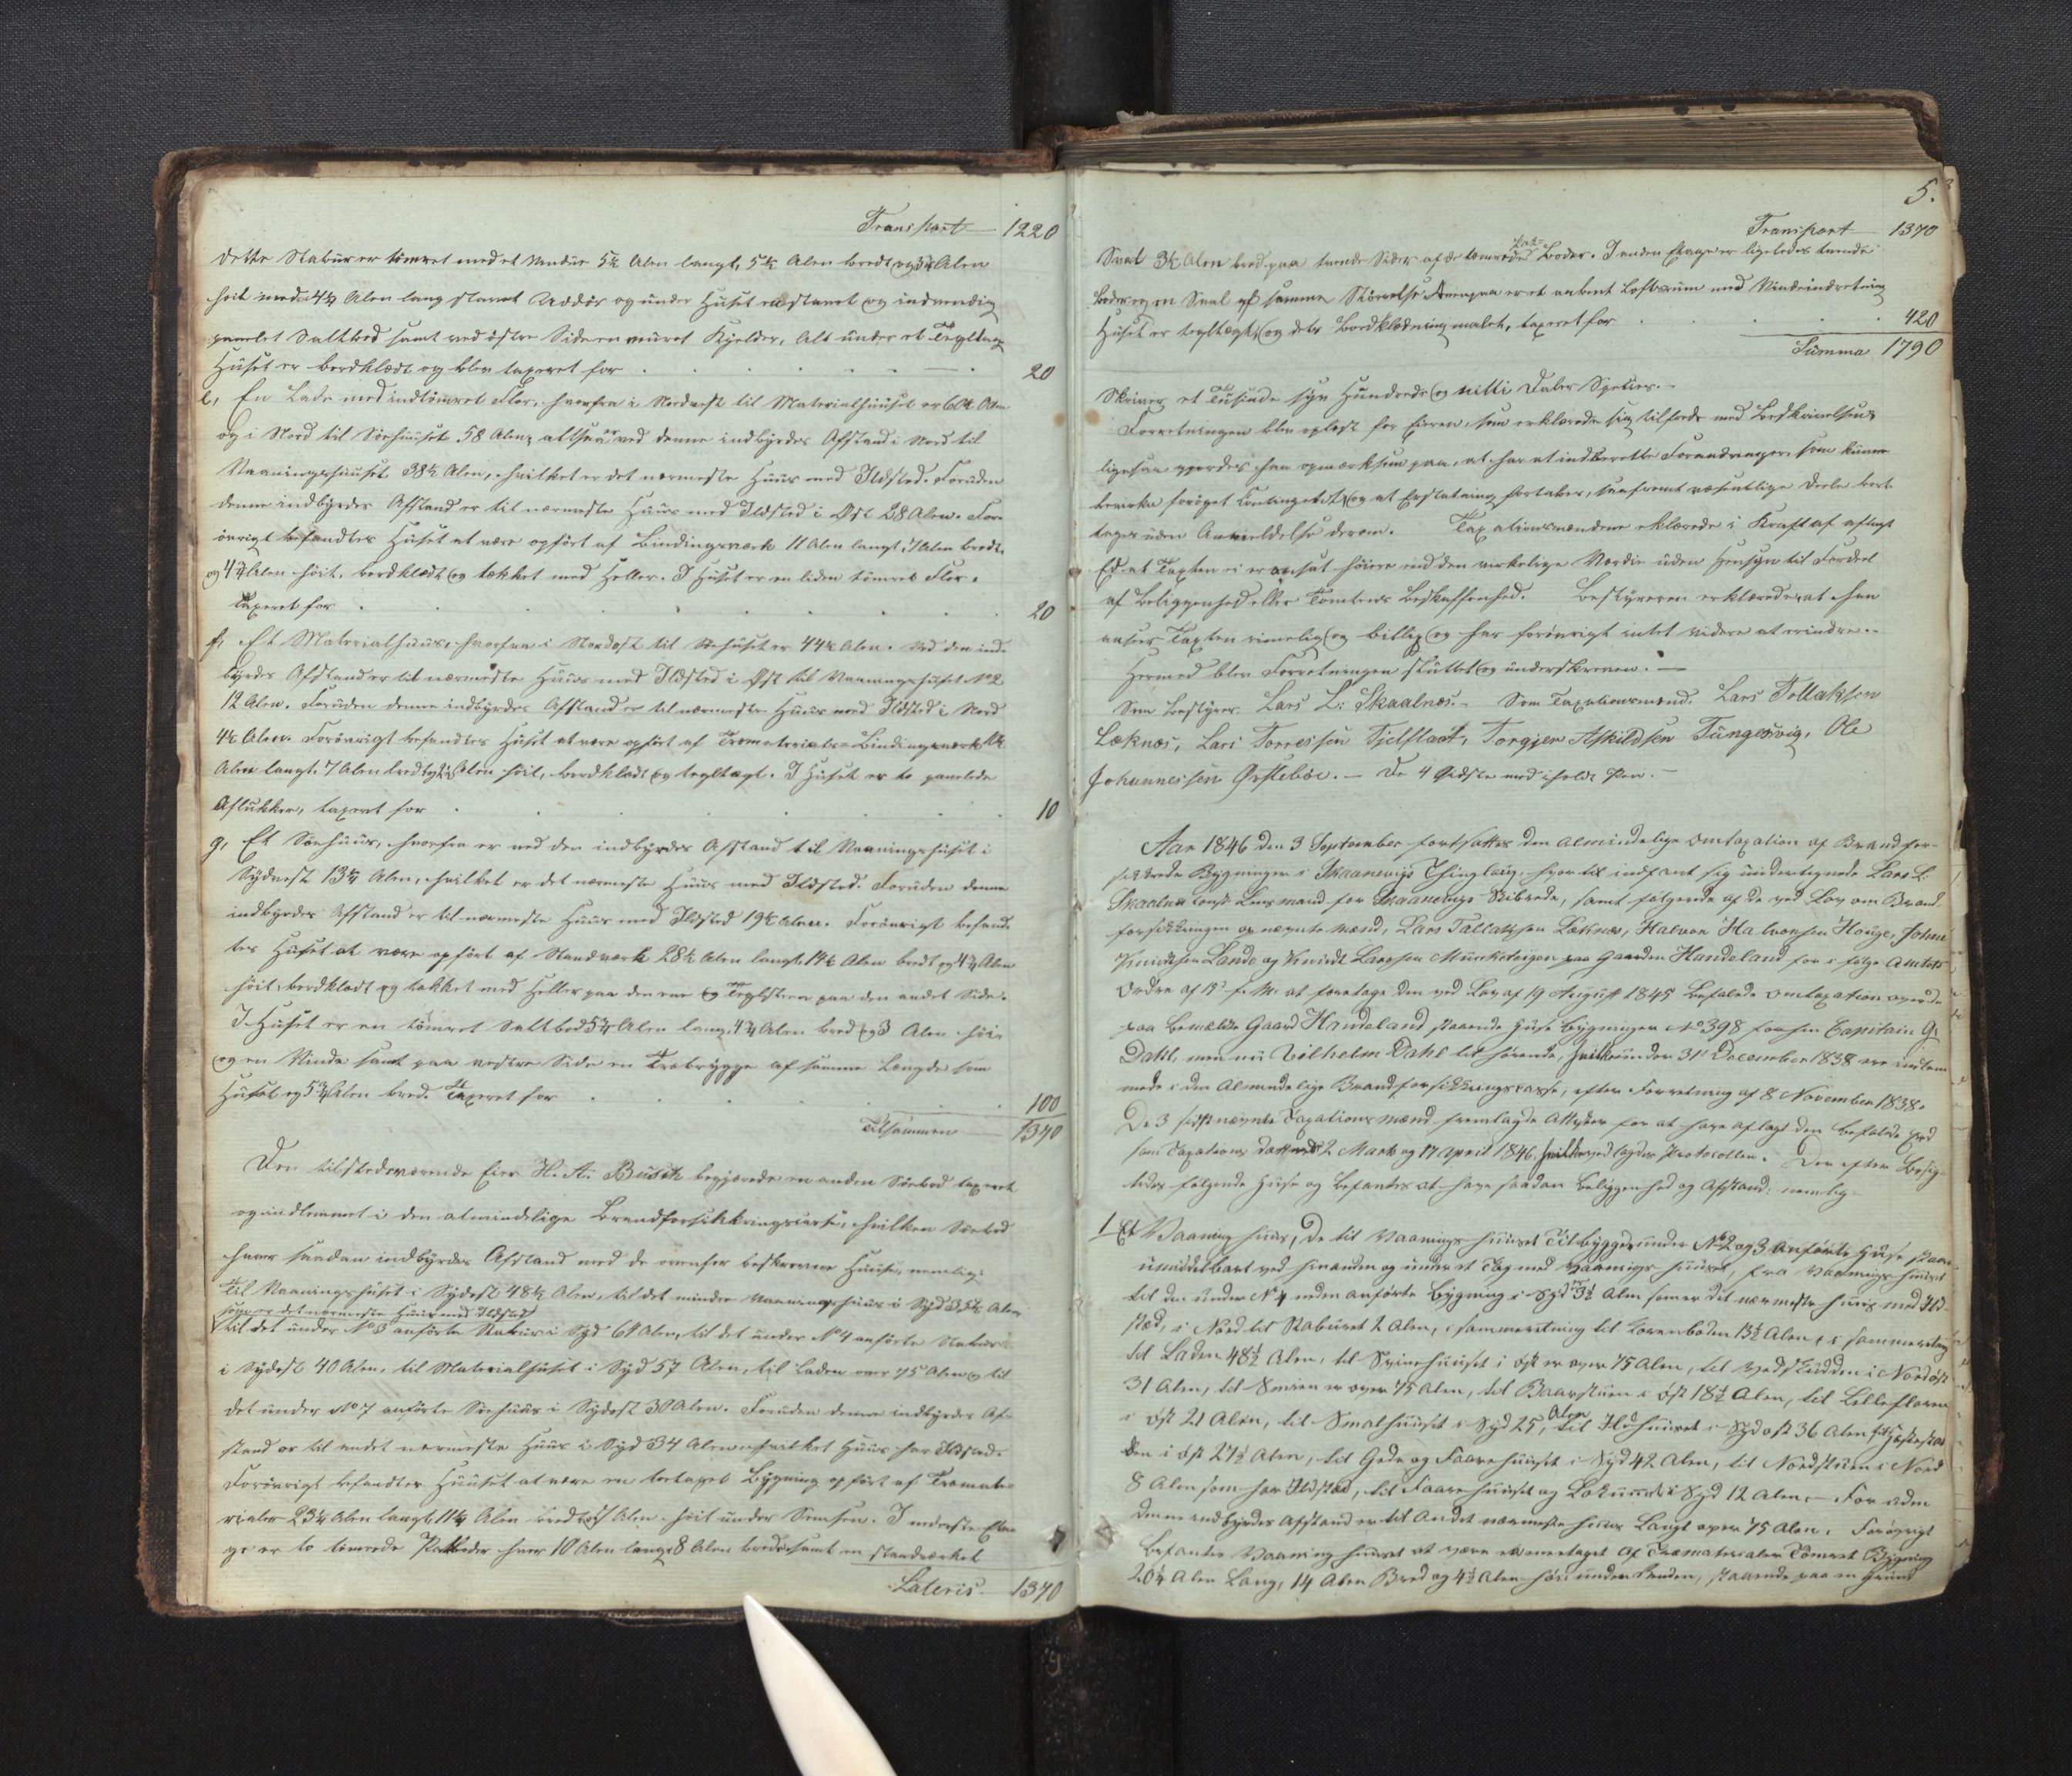 Transport 1220
dette Stabur er tømret med et Vindue 5¼ Alen langt, 5¼ Alen bredt og 3¼ Alen
høit med 4¼ Alen lang og under Huset og indvendig
panelet Saltbod samt ved østre Side en muret Kjelder, Alt under et Tegltag
Huset er bordklædt og blev taxeret for 20
e, En Lade med indtømret Flor, hvorfra i Nordvest til Materialhuuset er Alen
og i Nord til Søehuuset 58 Alen, altsaa er ved denne indbyrdes Afstand i Nord til
Vaaningshuuset 38¼ Alen, hvilket er det nærmeste Huus med Ildsted. Foruden
denne indbyrdes Afstand er til nærmeste Huus med Ildsted i Øst 28 Alen. For-
øvrigt befandtes Huset at være opført af Bindingsværk 11 Alen langt, 7 Alen bredt
og 4¼ Alen høit, bordklædt og tækket med Heller. I Huset er en liden tømret Flor.
Taxeret for 20
f, Et Materialhuus, hvorfra i Nordost til Søehuset er 44¼ Alen. Ved den ind-
byrdes Afstand er til nærmeste Huus med Ildsted i Øst til Vaaningshuset No 2
12 Alen. Foruden denne indbyrdes Afstand er til nærmeste Huus med Ildsted i Nord
4¼ Alen. Forøvrigt befandtes Huset at være opført af Træmaterialer Bindingsværk
Alen langt, 7 Alen bredt og Alen høit, bordklædt og tegltægt. I Huset er to panelede
Aflukker, taxeret for 10
g, Et Søehuus, hvorfra er ved den indbyrdes Afstand til Vaaningshuset i
Sydvest 13¼ Alen, hvilket er det nærmeste Huus med Ildsted. Foruden denne
indbyrdes Afstand er til nærmeste Huus med Ildsted 19¼ Alen. Forøvrigt befand-
tes Huset at være opført af Standværk 28¼ Alen langt, 14¼ Alen bredt og 4¼ Alen
høit, bordklædt og tækket med Heller paa den ene og Teglsteen paa den andet Side.
I Huset er en tømret Saltbod 5¼ Alen lang, 4¼ Alen bred og 3 Alen høi,
og en Vinde samt paa vestre Side en Træbrygge af samme Længde som
Huset og 5¼ Alen bred. Taxeret for 100
Tilsammen 1370
Den tilstedeværende Eier H. A. Busch begjærede en anden Søebod taxeret
og indlemmet i den almindelige Brandforsikkringscasse, hvilken Søebod
haver saadan indbyrdes Afstand med de ovenfor beskrevne Huuse, nemlig:
til Vaaningshuset i Sydost 48¼ Alen, til det mindre Vaaningshuus i Syd 35¼ Alen
som er det nærmeste Huus med Ildsted
til det under No 3 anførte Stabur i Syd 61 Alen, til det under No 4 anførte Stabur
i Sydost 40 Alen, til Materialhuset i Syd 57 Alen, til Laden over 75 Alen og til
det under No 7 anførte Søehuus i Sydost 30 Alen. Foruden denne indbyrdes Af-
stand er til andet nærmeste Huus i Syd 34 Alen hvilket Huus har Ildsted.
Forøvrigt befandtes Huuset at være en toetages Bygning opført af Træmate-
rialer 23¼ Alen langt, 11¼ Alen bredt og Alen høit under Sværsen. I nederste Eta-
ge er to tømrede Pakboder hver 10 Alen lang, 8 Alen brede samt en standværket
Lateris 1370
5.
Transport 1370
Sval 3¼ Alen bred paa tvende Sider af de tømrede Pak- Boder. I anden Etage er ligeledes tvende
Boder og en Sval af samme Størrelse ovenpaa er et aabent Loftsrum med Vindeindretning
Huset er tegltægt, og dets Bordklædning malet, taxeret for 420
Summa 1790
Skriver et Tusinde syv Hundrede og nitti Daler Species.
Forretningen blev oplæst for Eieren, som erklærede sig tilfreds med Beskrivelsen,
ligesaa gjordes han opmærksom paa, at han at indberette Forandringer som kunne
bevirke forøget Contingent, og at Erstatning fortabes, saafremt væsentlige Dele bort-
tages uden Anmeldelse derom. Taxationsmændene erklærede i Kraft af aflagt
Ed at Taxten ei er ansat høiere end den virkelige Værdie uden Hensyn til Fordeel
af Beliggenhed eller Tomtens Beskaffenhed. Bestyreren erklærede at han
ansees Taxten rimelig og billig og har forøvrigt intet videre at erindre.
Hermed blev Forretningen sluttet og underskreven.
Som Bestyrer Lars L. Skaalnæs. Som Taxationsmænd. Lars Tellaksen
Læknæs, Lars Torressen Fjelstadt, Torgjer Askildsen Tungesvig, Ole
Johannessen Ørstebøe. De 4 Sidste med iholdt Pen.
Aar 1846 den 3 September fortsattes den Almindelige Omtaxation af Brandfor-
sikkrede Bygninger i Skaanevigs Thinglaug, hvortil indfant sig undertegnede Lars L.
Skaalnæs Const. Lensmand for Skaanevigs Skibrede, samt følgende af de ved Lov om Brand-
forsikkringen opnævnte Mænd, Lars Tallaksen Læknæs, Halvor Halvorsen Houge, Johan
Knudtsen Lande og Knudt Larssen Munketeigen paa Gaarden Handeland for i følge Amtets
Ordre af 15 f. M. at foretage den ved Lov af 19 August 1845 Befalede Omtaxation over de
paa bemeldte Gaard Handeland staaende Huse Bygninger No 398 forhen Capitain G.
Dahl, men nu Vilhelm Dahl tilhørende, hvilke under 31 December 1838 ere indlem-
mede i den Almindelige Brandforsikkringscasse, efter Forretning af 8 November 1838.
De 3 sidstnævnte Taxationsmænd fremlagde Attester for at have aflagt den befalede Eed
som Taxationsmænd 2 Marts og 17 April 1846, hvilke vedlægges Protocollen. Der efter Besig-
tedes følgende Huse og Befantes at have saadan Beliggenhed og Afstand, nemlig
1 Et Vaaninghuus, De til Vaaningshuuset Tilbyggede under No 2 og 3 Anførte Huse staar
umiddelbart ved hinanden og under et Tag med Vaanings huuset, fra Vaaningshuuset
til den under No 4 neden anførte Bygning i Syd 3½ Alen som er det nærmeste huus med Ild-
sted, i Nord til Staburet 2 Alen, i sammeretning til Kornboden 13½ Alen, i sammeretning
til Laden 48½ Alen, til Svinehuuset i øst er over 75 Alen, til Vedskudden i Nordøst
31 Alen, til Smien er over 75 Alen, til Baarstuen i øst 18½ Alen, til Lillefloren
i øst 21 Alen, til Smalhuuset i Syd 25 Alen, til Ildhuuset i Sydost 36 Alen, til Hestestal-
den i øst 27½ Alen, til Gede og Faarehuuset i Syd 42 Alen, til Nordstuen i Nord
8 Alen som har Ildsted, til Faarehuuset og Lokummet i Syd 12 Alen. For uden
denne indbyrdes Afstand er til Andet nærmeste huus Langt over 75 Alen. Forøvrigt
befantes Vaaning huuset at være et eenetaget af Træmaterialer Tømret Bygning
20¼ Alen Lang, 14 Alen Bred og 4½ Alen høi under Renden, staaende paa en Grund